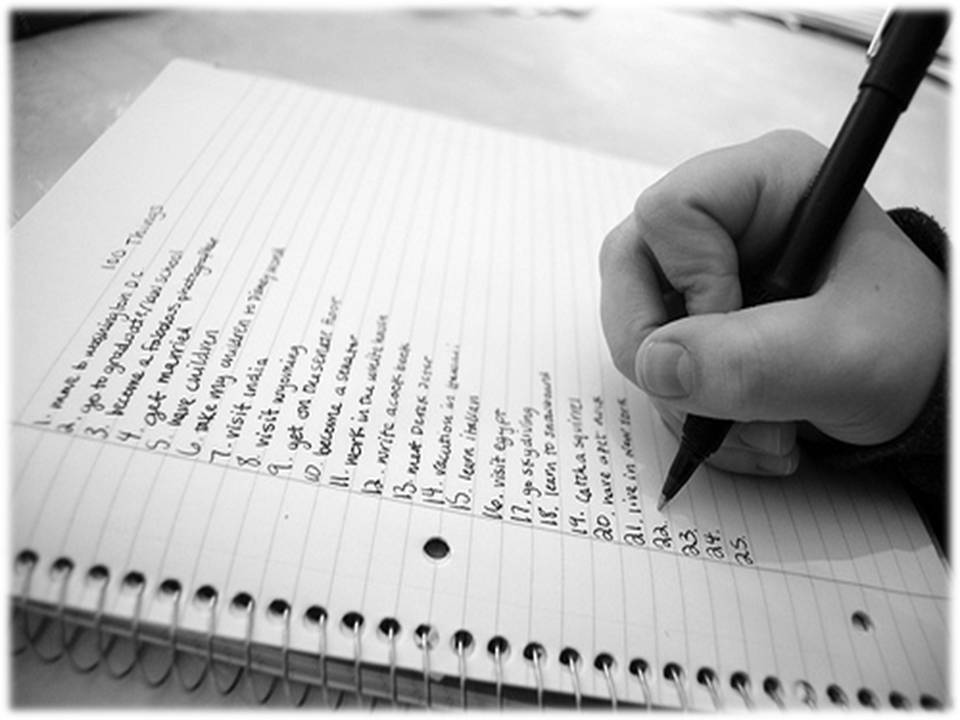 100 Things
1. move to washington D.C.
2. go to graduate/law school
3. become a fabulous photographer
4. get married
5. have children
6. take my children to Disney world
7. visit India
8. visit wyoming
9. get on the senate floor
10. become a senator
11. work in the white house
12. write a cook book
13. meet Derek Jeter
14. vacation in
15. learn italian
16. visit egypt
17. go skydiving
18. learn to snowboard
19. catch a squirrel
20. have a pet
21. live in new york
22.
23.
24.
25.